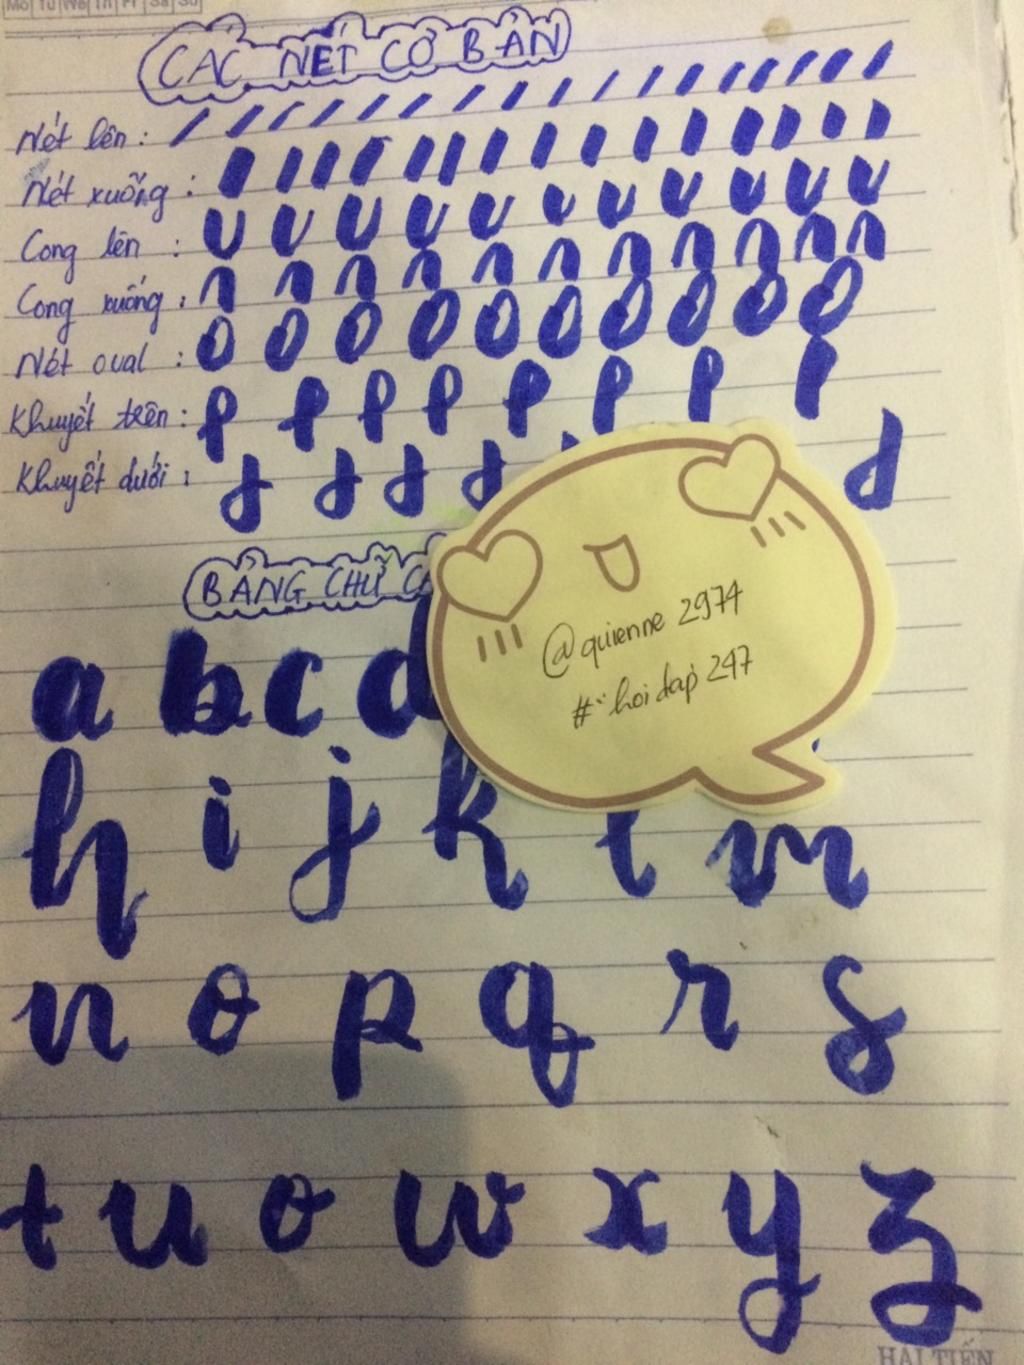 Mo Tu We Th Fr Sa Su
CÁC NÉT CƠ BẢN
Nét lên :
Nét xuống :
Cong lên :
Cong xuống :
Nét oval :
Khuyết trên :
Khuyết dưới :
BẢNG CHỮ
@quienne 2974
#hoidap 247
a b c d
h i j k l m
n o p q r s
t u o w x y z
HẢI TIẾN